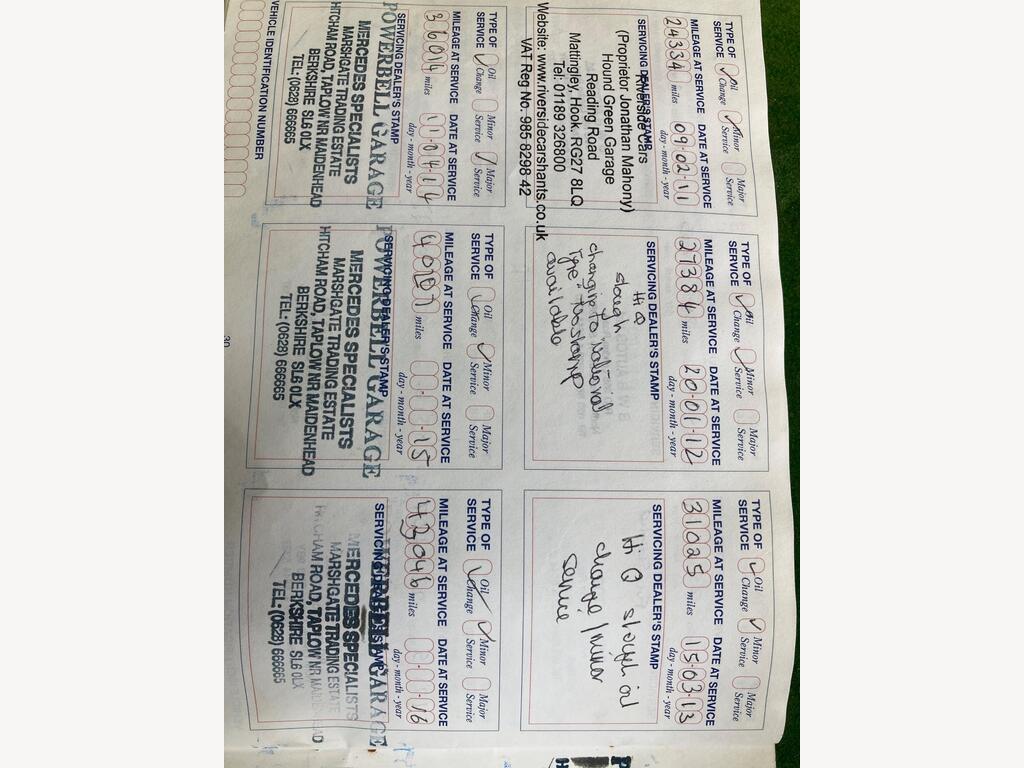 TYPE OF SERVICE ✓ Oil Change ✓ Minor Service Major Service
MILEAGE AT SERVICE DATE AT SERVICE
24334 miles 09·02·11
day - month - year
SERVICING DEALER'S STAMP
Riverside Cars
(Proprietor Jonathan Mahony)
Hound Green Garage
Reading Road
Mattingley, Hook. RG27 8LQ
Tel: 01189 326800
Website: www.riversidecarshants.co.uk
VAT Reg No. 985 8298 42
TYPE OF SERVICE ✓ Oil Change ✓ Minor Service Major Service
MILEAGE AT SERVICE DATE AT SERVICE
27384 miles 20·01·12
day - month - year
SERVICING DEALER'S STAMP
Hi Q
slough
changing to National
Type. No stamp
available
TYPE OF SERVICE ✓ Oil Change ✓ Minor Service Major Service
MILEAGE AT SERVICE DATE AT SERVICE
31025 miles 15·03·13
day - month - year
SERVICING DEALER'S STAMP
Hi Q slough oil
change / minor
service
TYPE OF SERVICE ✓ Oil Change Minor Service ✓ Major Service
MILEAGE AT SERVICE DATE AT SERVICE
36014 miles 11·04·14
day - month - year
SERVICING DEALER'S STAMP
POWERBELL GARAGE
MERCEDES SPECIALISTS
MARSHGATE TRADING ESTATE
HITCHAM ROAD, TAPLOW NR MAIDENHEAD
BERKSHIRE SL6 0LX
TEL: (0628) 666665
VEHICLE IDENTIFICATION NUMBER
TYPE OF SERVICE ✓ Oil Change ✓ Minor Service Major Service
MILEAGE AT SERVICE DATE AT SERVICE
miles 15
day - month - year
SERVICING DEALER'S STAMP
POWERBELL GARAGE
MERCEDES SPECIALISTS
MARSHGATE TRADING ESTATE
HITCHAM ROAD, TAPLOW NR MAIDENHEAD
BERKSHIRE SL6 0LX
TEL: (0628) 666665
TYPE OF SERVICE ✓ Oil Change ✓ Minor Service Major Service
MILEAGE AT SERVICE DATE AT SERVICE
miles 16
day - month - year
SERVICING DEALER'S STAMP
POWERBELL GARAGE
MERCEDES SPECIALISTS
MARSHGATE TRADING ESTATE
HITCHAM ROAD, TAPLOW NR MAIDENHEAD
BERKSHIRE SL6 0LX
TEL: (0628) 666665
30